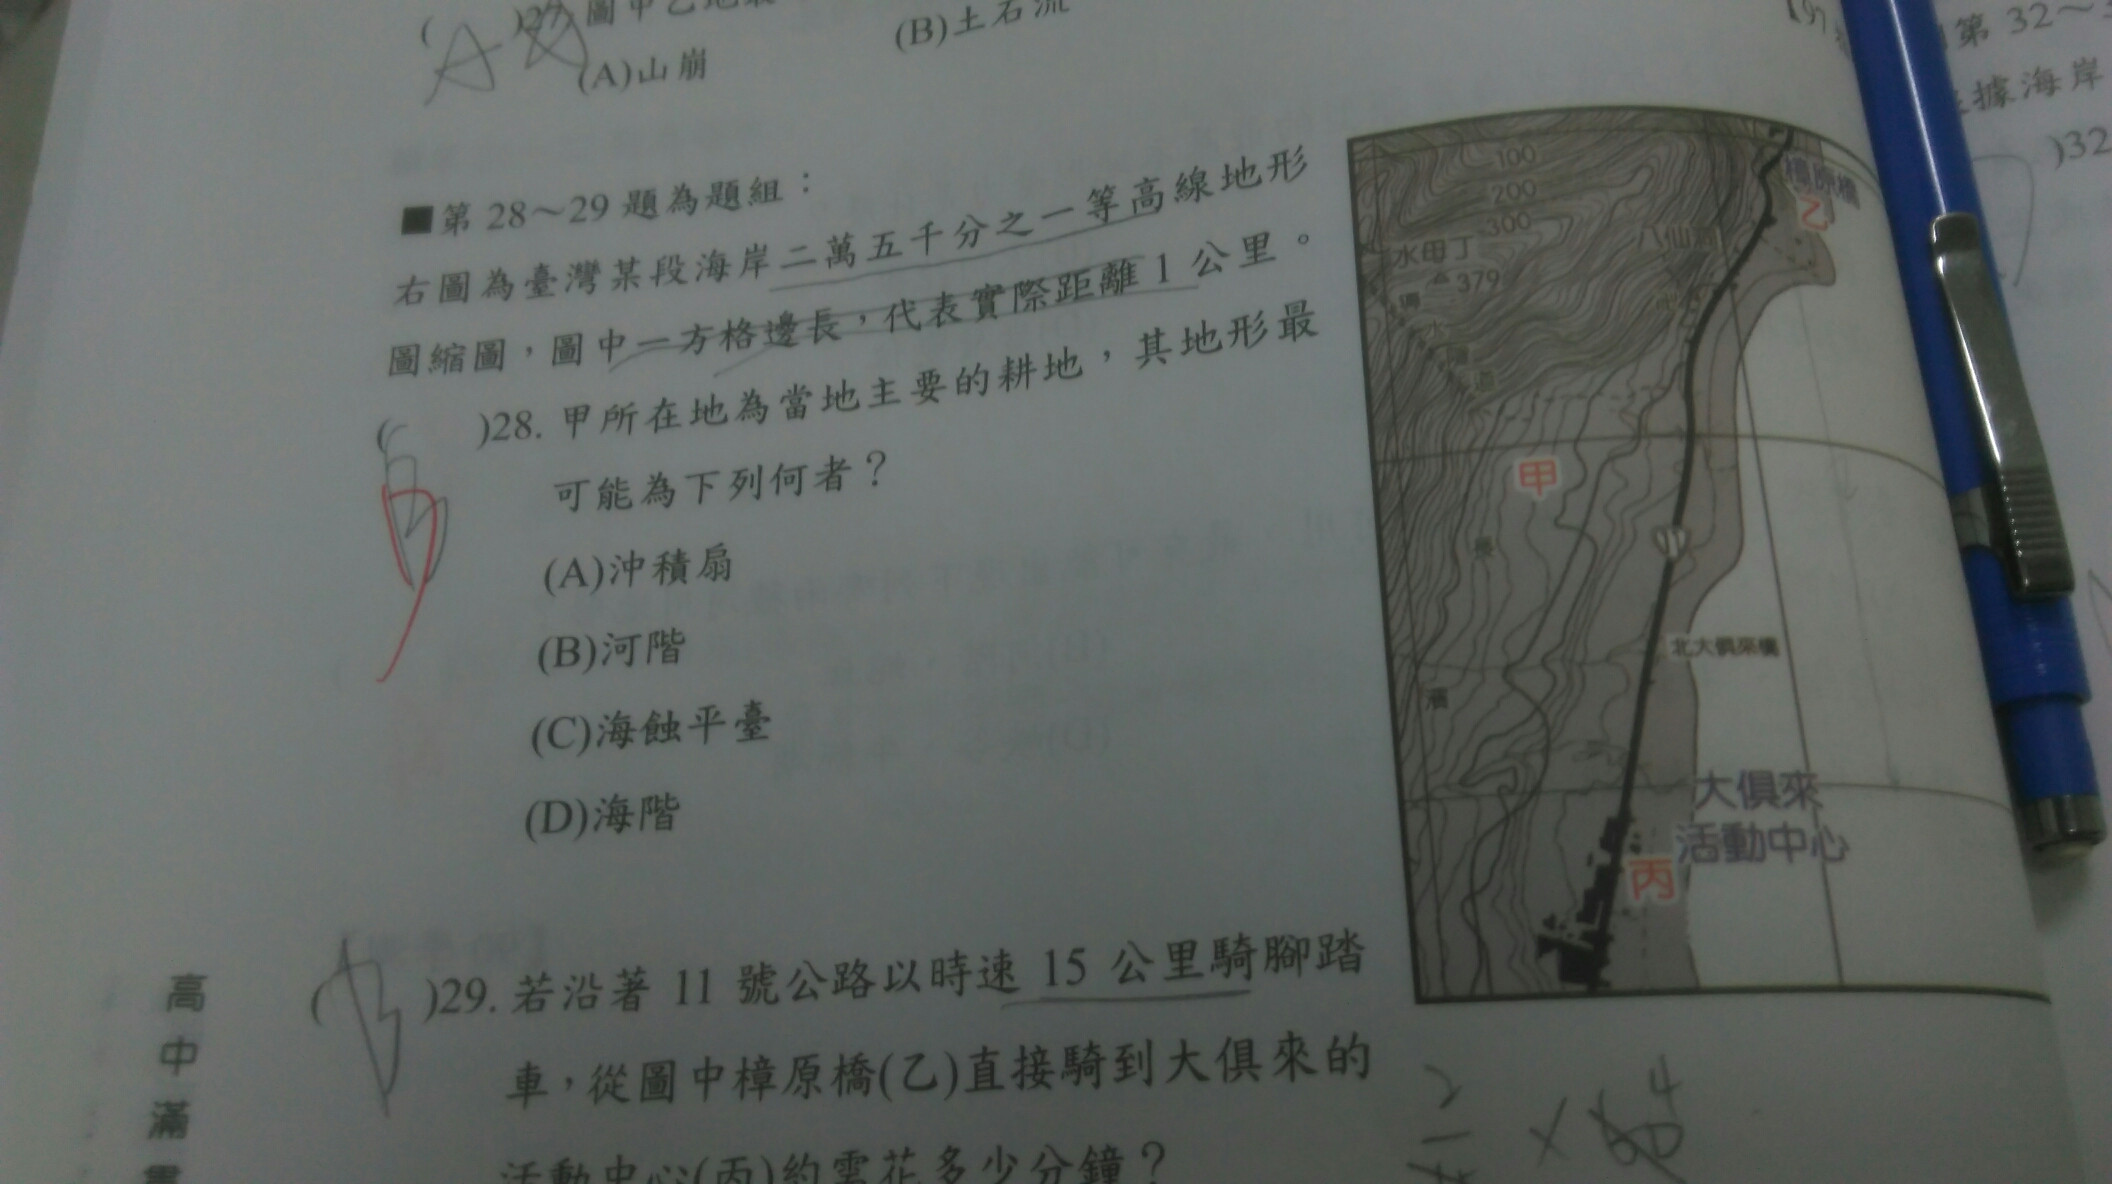 圖中乙地
(A)山崩
(B)土石流
■第 28～29 題為題組：
右圖為臺灣某段海岸二萬五千分之一等高線地形
圖縮圖，圖中一方格邊長，代表實際距離 1 公里。
( )28. 甲所在地為當地主要的耕地，其地形最
可能為下列何者？
(A)沖積扇
(B)河階
(C)海蝕平臺
(D)海階
( )29. 若沿著 11 號公路以時速 15 公里騎腳踏
車，從圖中樟原橋(乙)直接騎到大俱來的
活動中心(丙)約需花多少分鐘？
高中滿
100
200
300
水母丁
379
八仙洞
樟原橋
乙
甲
長
濱
11
北大俱來橋
大俱來
活動中心
丙
第 32～
據海岸
)32
【97
× 60 4